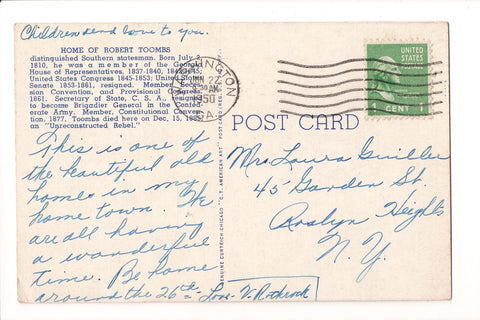 Children send love to you.
HOME OF ROBERT TOOMBS
distinguished Southern statesman. Born July 2,
1810, he was a member of the Georgia
House of Representatives, 1837-1840, 1842-1845;
United States Congress 1845-1853; United States
Senate 1853-1861, resigned. Member, Seces-
sion Convention, and Provisional Congress,
1861. Secretary of State, C. S. A., resigned
to become Brigadier General in the Confed-
erate Army, Member, Constitutional Conven-
tion, 1877. Toombs died here on Dec. 15, 1885,
an "Unreconstructed Rebel."
This is one of
the beautiful old
homes in my
home town. We
are all having
a wonderful
time. Be home
around the 26th - Love - V. Rothrock
GENUINE CURTEICH-CHICAGO "C.T. AMERICAN ART" POST CARD
WASHINGTON
JUN 22
AM
1950
GA.
UNITED
STATES
POSTAGE
1 CENT 1
POST CARD
Mrs Laura
45 Garden St.
Roslyn Heights
N. Y.